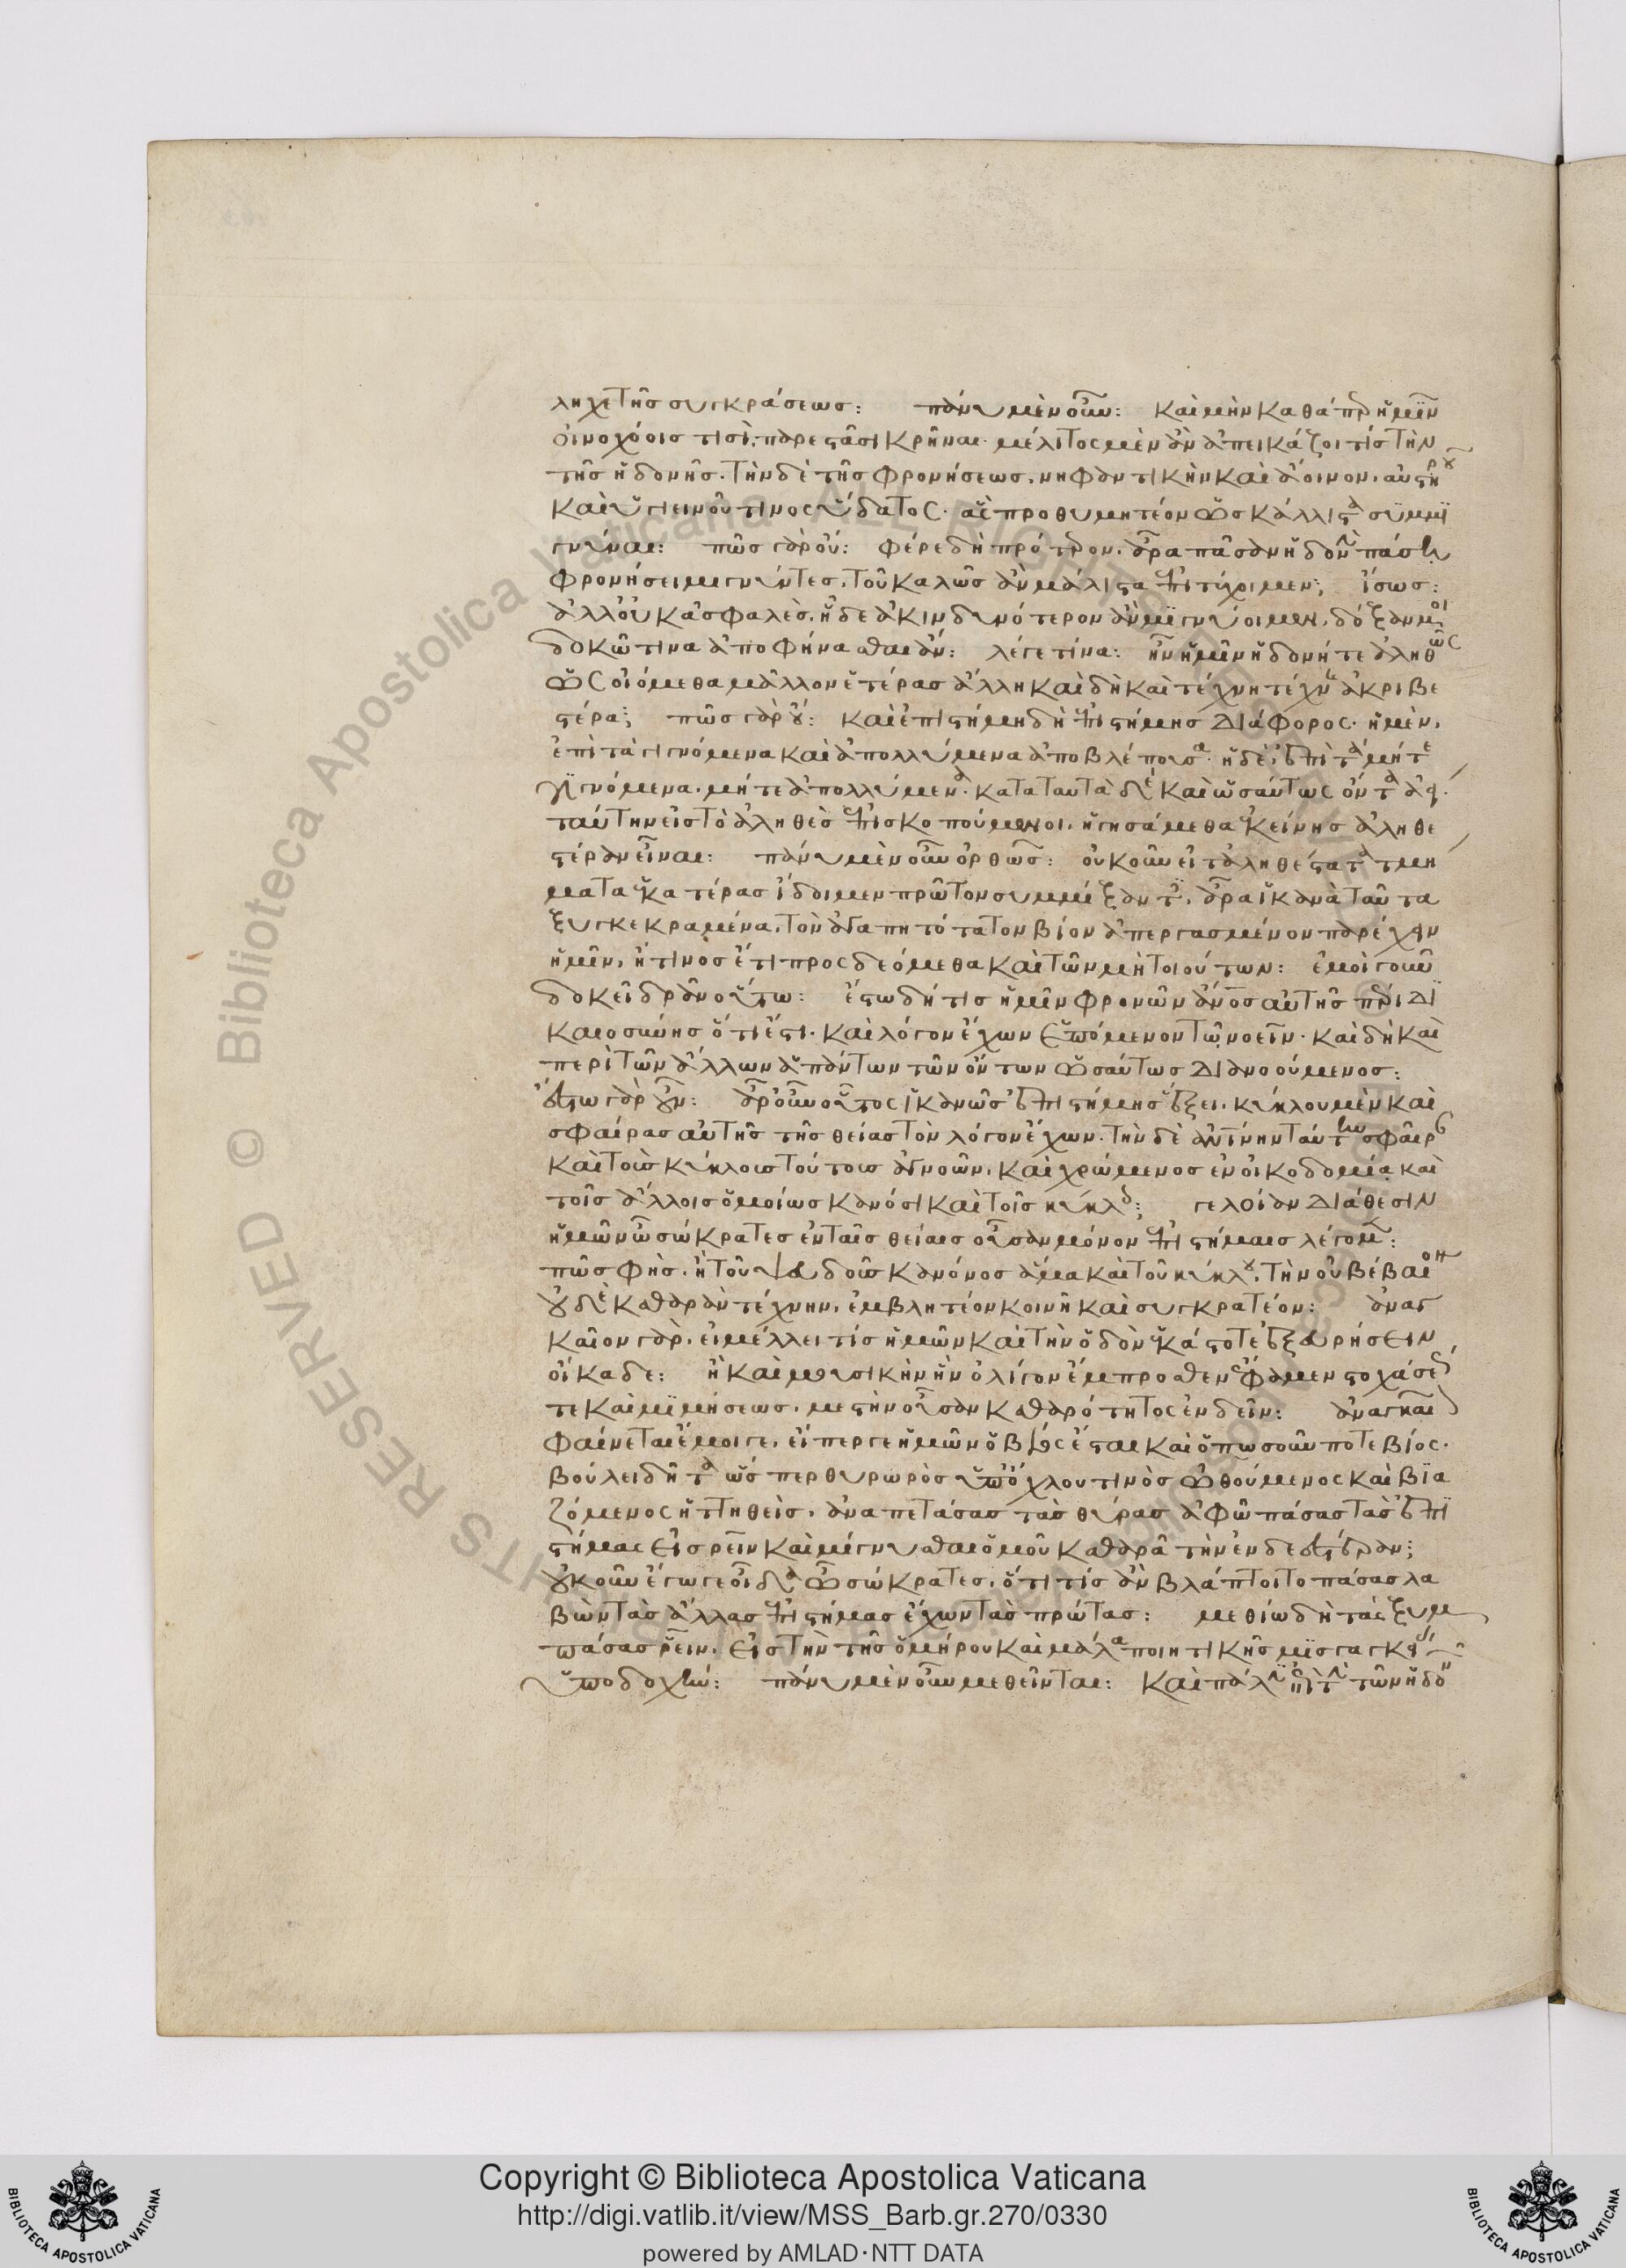 ληχε τῆς συγκράσεως: πάνυ μὲν οὖν: καὶ μὴν καθάπερ ἡμῖν
οἰνοχόοις τισὶ, παρεστᾶσι κρῆναι· μέλιτος μὲν ἂν ἀπεικάζοι τίς τὴν
τῆς ἡδονῆς. τὴν δὲ τῆς φρονήσεως, νηφαντικὴν καὶ ἄοινον, αὐστηροῦ
καὶ ὑγιεινοῦ τινος ὕδατος. ἃς προθυμητέον ὡς κάλλιστα συμμι
γνύναι: πῶς γὰρ οὔ: φέρε δὴ πρότερον. ἆρα πᾶσαν ἡδονὴν πάσῃ
φρονήσει μιγνύντες, τοῦ καλῶς ἂν μάλιστα ἐπιτύχοιμεν; ἴσως:
ἀλλ' οὐκ ἀσφαλὲς. ᾗ δὲ ἀκινδυνότερον ἂν μιγνύοιμεν, δόξαν μοι
δοκῶ τινα ἀποφήνασθαι ἄν: λέγε τίνα: ἦν ἡμῖν ἡδονή τε ἀληθῶς
ὡς οἰόμεθα μᾶλλον ἑτέρας ἄλλη καὶ δὴ καὶ τέχνη τέχνης ἀκριβε
στέρα; πῶς γὰρ οὔ: καὶ ἐπιστήμη δὴ ἐπιστήμης διάφορος. ἡ μὲν,
ἐπὶ τὰ γιγνόμενα καὶ ἀπολλύμενα ἀποβλέπουσα. ἡ δὲ, ἐπὶ τὰ μήτε
γιγνόμενα. μήτε ἀπολλύμενα. κατα ταυτὰ δὲ καὶ ὡσαύτως ὄντα ἀεί.
ταύτην εἰς τὸ ἀληθὲς ἐπισκοπούμενοι, ἡγησάμεθα ἐκείνης ἀληθε
στέραν εἶναι: πάνυ μὲν οὖν ὀρθῶς: οὐκοῦν εἰ τἀληθέστατα τμή
ματα ἑκατέρας ἴδοιμεν πρῶτον συμμίξαντες, ἆρα ἱκανὰ ταῦτα
ξυγκεκραμένα, τὸν ἀγαπητότατον βίον ἀπεργασμένον παρέχειν
ἡμῖν, ἤ τινος ἔτι προσδεόμεθα καὶ τῶν μὴ τοιούτων: ἐμοὶ γοῦν
δοκεῖ δρᾶν οὕτω: ἔστω δή τις ἡμῖν φρονῶν ἄνος αὐτῆς περὶ δι
καιοσύνης ὅτι ἔστι. καὶ λόγον ἔχων ἑπόμενον τῷ νοεῖν. καὶ δὴ καὶ
περὶ τῶν ἄλλων ἁπάντων τῶν ὄντων ὡσαύτως διανοούμενος:
ἔστω γὰρ οὖν: ἆρ' οὖν οὗτος ἱκανῶς ἐπιστήμης ἕξει. κύκλου μὲν καὶ
σφαίρας αὐτῆς τῆς θείας τὸν λόγον ἔχων. τὴν δὲ ἀνθρωπίνην ταύτην σφαῖραν
καὶ τοὺς κύκλους τούτους ἀγνοῶν. καὶ χρώμενος ἐν οἰκοδομίᾳ καὶ
τοῖς ἄλλοις ὁμοίως κανόσι καὶ τοῖς κύκλοις; γελοίαν διάθεσιν
ἡμῶν ὦ σώκρατες ἐν ταῖς θείαις οὖσαν μόνον ἐπιστήμαις λέγομεν:
πῶς φῂς. ἦ τοῦ ψευδοῦς κανόνος ἅμα καὶ τοῦ κύκλου, τὴν οὐ βέβαιον
οὐδὲ καθαρὰν τέχνην, ἐμβλητέον κοινῇ καὶ συγκρατέον: ἀναγ
καῖον γὰρ, εἰ μέλλει τίς ἡμῶν καὶ τὴν ὁδὸν ἑκάστοτε ἐξευρήσειν
οἴκαδε: ἦ καὶ μουσικὴν ἣν ὀλίγον ἔμπροσθεν ἔφαμεν στοχάσεώς
τε καὶ μιμήσεως, μεστὴν οὖσαν καθαρότητος ἐνδεῖν: ἀναγκαῖον
φαίνεται ἔμοιγε, εἴπερ γε ἡμῶν ὁ βίος ἔσται καὶ ὁπωσοῦν ποτε βίος.
βούλει δῆτα ὥσπερ θυρωρὸς ὑπ' ὄχλου τινὸς ὠθούμενος καὶ βια
ζόμενος ἡττηθεὶς, ἀναπετάσας τὰς θύρας ἀφῶ πάσας τὰς ἐπι
στήμας εἰσρεῖν καὶ μίγνυσθαι ὁμοῦ καθαρᾷ τὴν ἐνδεεστέραν;
οὔκουν ἔγωγε οἶδα ὦ σώκρατες, ὅτι τίς ἂν βλάπτοιτο πάσας λα
βὼν τὰς ἄλλας ἐπιστήμας ἔχων τὰς πρώτας: μεθίω δὴ τὰς ξυμ
πάσας ῥεῖν. εἰς τὴν τῆς ὁμήρου καὶ μάλα ποιητικῆς μισγαγκείας
ὑποδοχήν: πάνυ μὲν οὖν μεθεῖνται: καὶ πάλιν ἐπὶ τὴν τῶν ἡδον
Copyright © Biblioteca Apostolica Vaticana
http://digi.vatlib.it/view/MSS_Barb.gr.270/0330
powered by AMLAD·NTT DATA
BIBLIOTECA APOSTOLICA VATICANA
BIBLIOTECA APOSTOLICA VATICANA